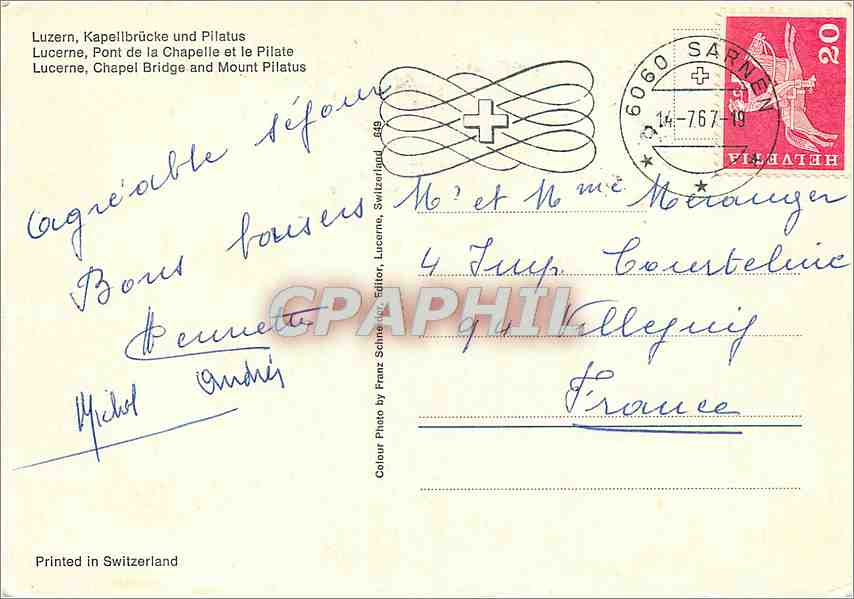 Luzern, Kapellbrücke und Pilatus
Lucerne, Pont de la Chapelle et le Pilate
Lucerne, Chapel Bridge and Mount Pilatus
agréable séjour
Bons baisers
Michel André
Printed in Switzerland
Colour Photo by Franz Schneider, Editor, Lucerne, Switzerland 649
6060 SARNEN
14.-7.67-19
20
HELVETIA
Mr et Mme Meranger
4 Imp. Courteline
94 Villeguiy
France
CPAPHIL